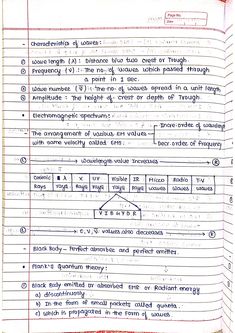 Page No.
Date
- Characteristics of waves:
① Wave length (λ) : Distance b/w two crest or Trough.
② Frequency (ν) :- The no. of waves which passed through
a point in 1 sec.
③ Wave number (ν̅) : The no. of waves spread in a unit length
④ Amplitude : The height of crest or depth of Trough
- Electromagnetic spectrum:
Incre-order of wavelength
The arrangement of various EM values
with same velocity called EMS.
Decr-order of frequency
① Wavelength value increases
Cosmic Rays
X rays
UV rays
Visible rays
IR rays
Micro waves
Radio waves
T.V waves
V I B G Y O R
ε, ν, ν̅ values also decreases
- Black Body - Perfect absorber and perfect emitter.
- Plank's Quantum theory:
① Black Body emitted or absorbed EMR or Radiant energy
a) discontinously
b) In the form of small packets called quanta.
c) which is propagated in the form of waves.